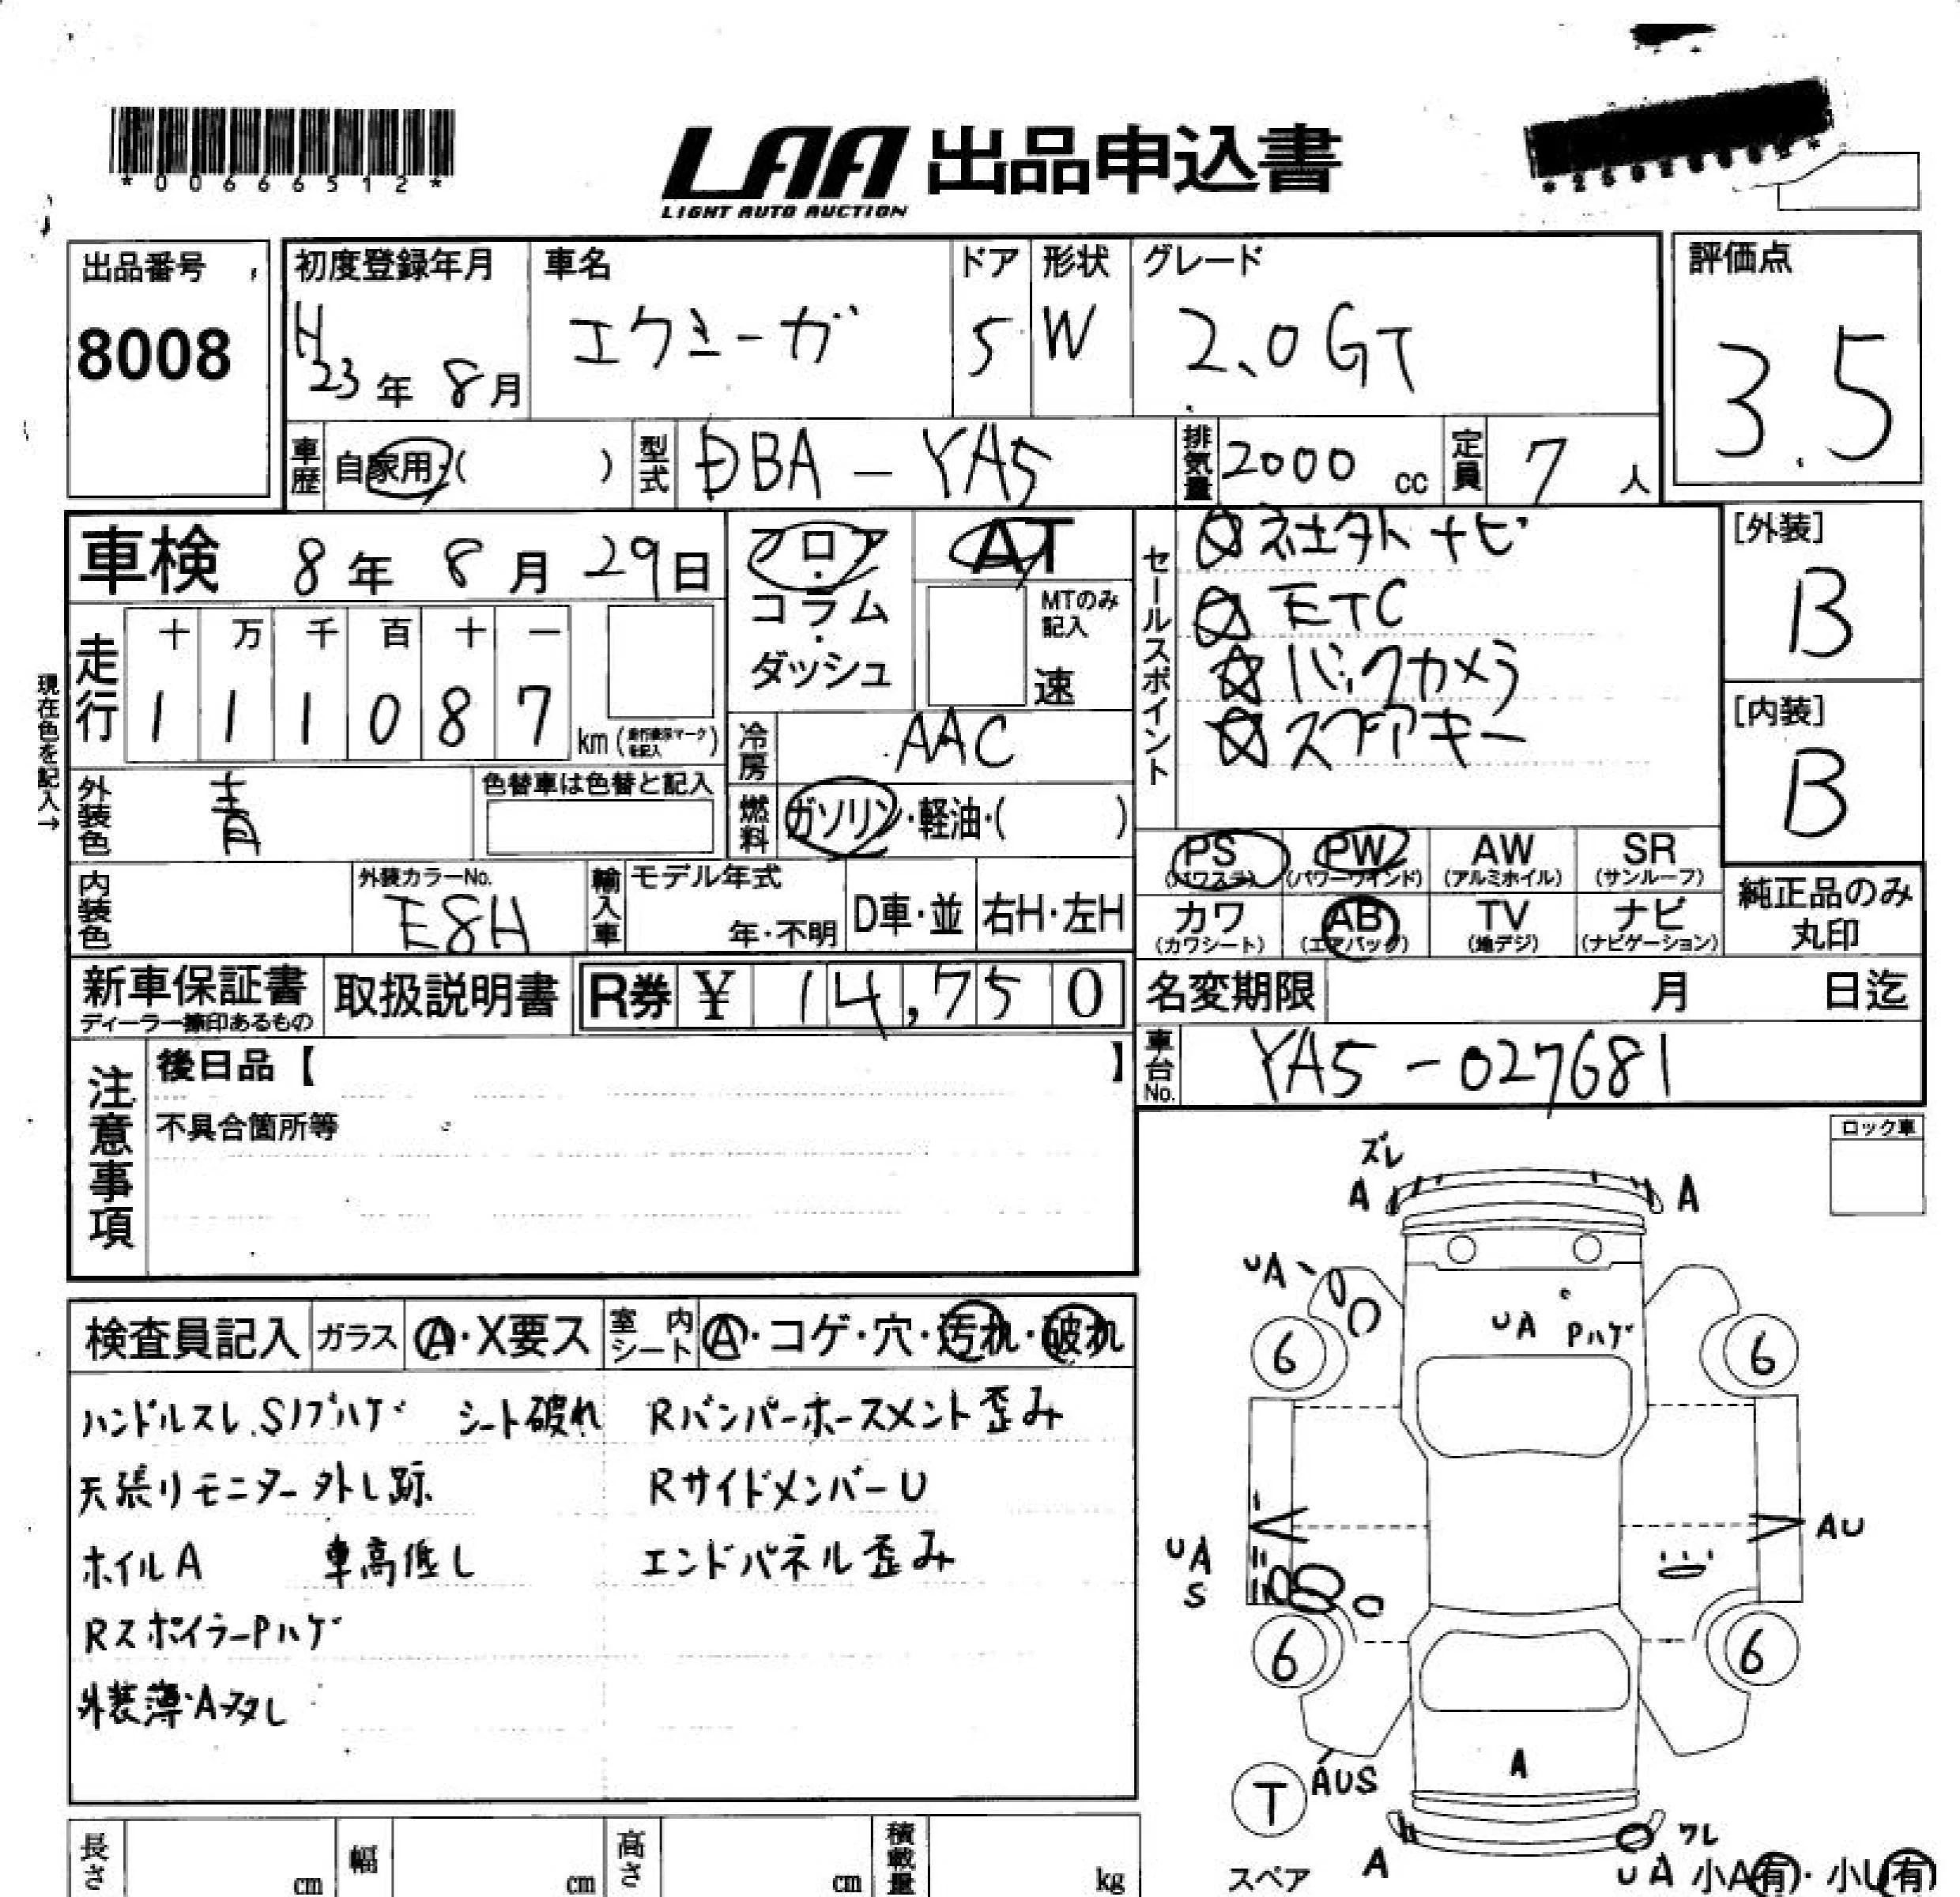 *00666512*
LAA 出品申込書
LIGHT AUTO AUCTION
出品番号
8008
初度登録年月
H
23年 8月
車名
エクシーガ
ドア
5
形状
W
グレード
2.0GT
評価点
3.5
車歴 自家用・( )
型式 DBA-YA5
排気量 2000 cc
定員 7 人
車検 8年 8月 29日
フロア・コラム・ダッシュ
AT
MTのみ記入
速
セールスポイント
☆社外ナビ
☆ETC
☆バックカメラ
☆スペアキー
[外装]
B
[内装]
B
現在色を記入→
走行
十 万 千 百 十 一
1 1 1 0 8 7 km(走行表示マークを記入)
冷房 AAC
外装色 青
色替車は色替と記入
燃料 ガソリン・軽油・( )
PS (パワステ)
PW (パワーウインド)
AW (アルミホイル)
SR (サンルーフ)
カワ (カワシート)
AB (エアバッグ)
TV (地デジ)
ナビ (ナビゲーション)
純正品のみ丸印
内装色
外装カラーNo.
E8H
輸入車 モデル年式
年・不明
D車・並
右H・左H
新車保証書
ディーラー捺印あるもの
取扱説明書
R券 ¥ 14,750
名変期限 月 日迄
車台No. YA5-027681
注意事項
後日品【 】
不具合箇所等
ロック車
検査員記入
ガラス A・X要ス
室内シート A・コゲ・穴・汚れ・破れ
ハンドルスレ.Sノブハゲ シート破れ Rバンパーホースメント歪み
天張りモニター外し跡 RサイドメンバーU
ホイルA 車高低し エンドパネル歪み
RスポイラーPハゲ
外装薄.A多数し
ズレ
A A
UA
UA Pハゲ
6 6
AU
UA
S
6 6
A
T AUS
スペア
A
ワレ
UA 小A有・小U有
長さ cm
幅 cm
高さ cm
積載量 kg